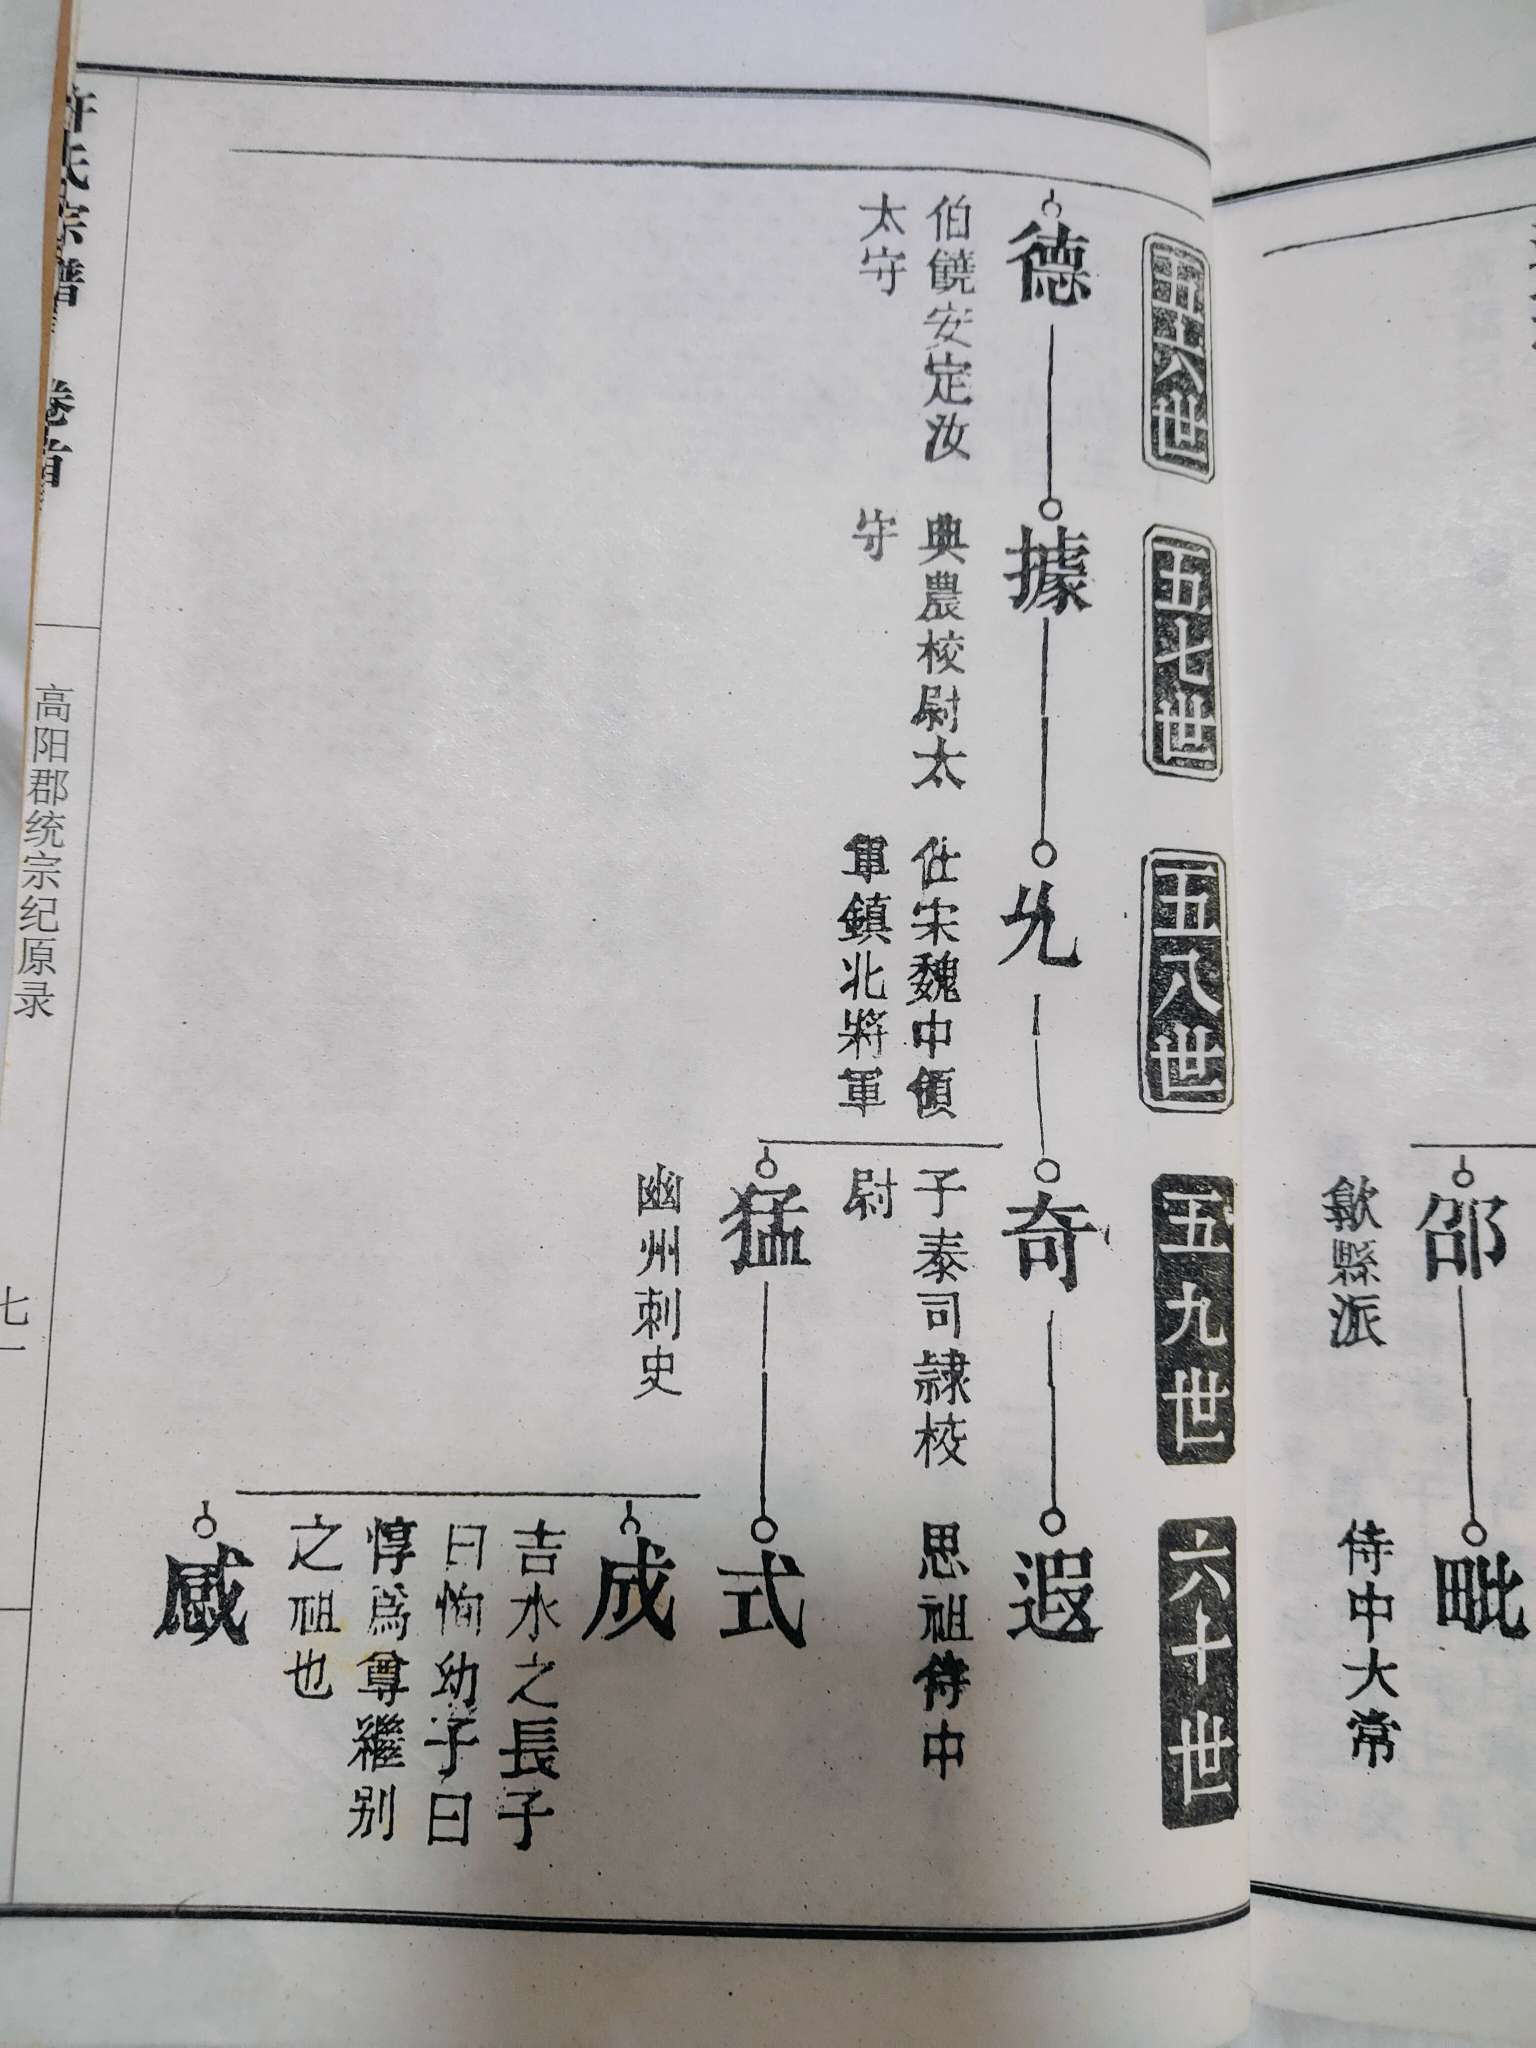 五六世
德
伯饒安定汝
太守
五七世
據
典農校尉太
守
五八世
允
仕宋魏中領
軍鎮北將軍
五九世
奇
子泰司隷校
尉
猛
幽州刺史
六十世
遐
思祖侍中
式
成
吉水之長子
曰恂幼子曰
惇爲尊繼别
之祖也
感
邵
歙縣派
毗
侍中大常
許氏宗譜 卷首
高阳郡统宗纪原录
七一